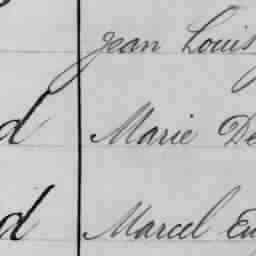 Jean Louis
d Marie De
d Marcel Eu